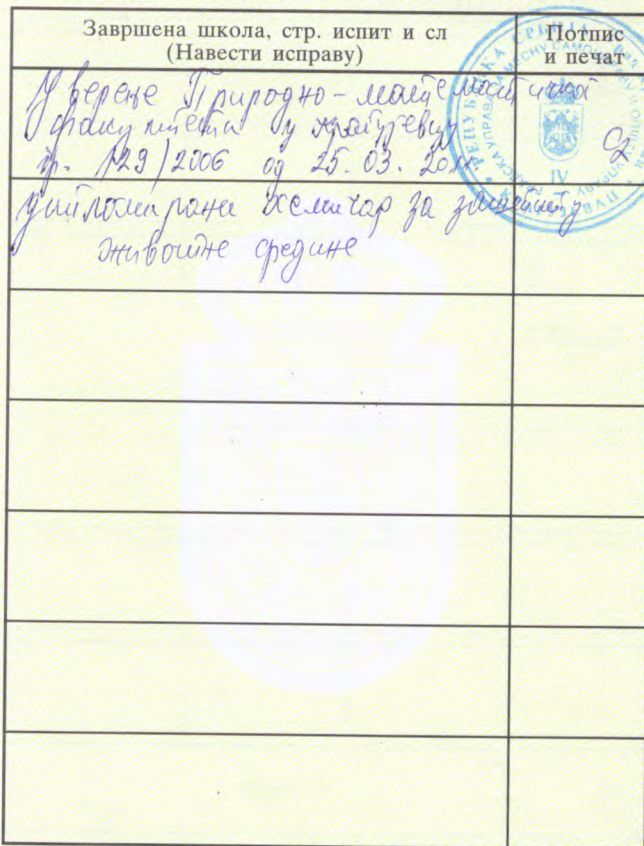 Завршена школа, стр. испит и сл
(Навести исправу)
Потпис
и печат
Уверење Природно-математичког
факултета у Крагујевцу
бр. 129/2006 од 25.03.2011
дипломирани хемичар за заштиту
животне средине
РЕПУБЛИКА СРБИЈА
IV